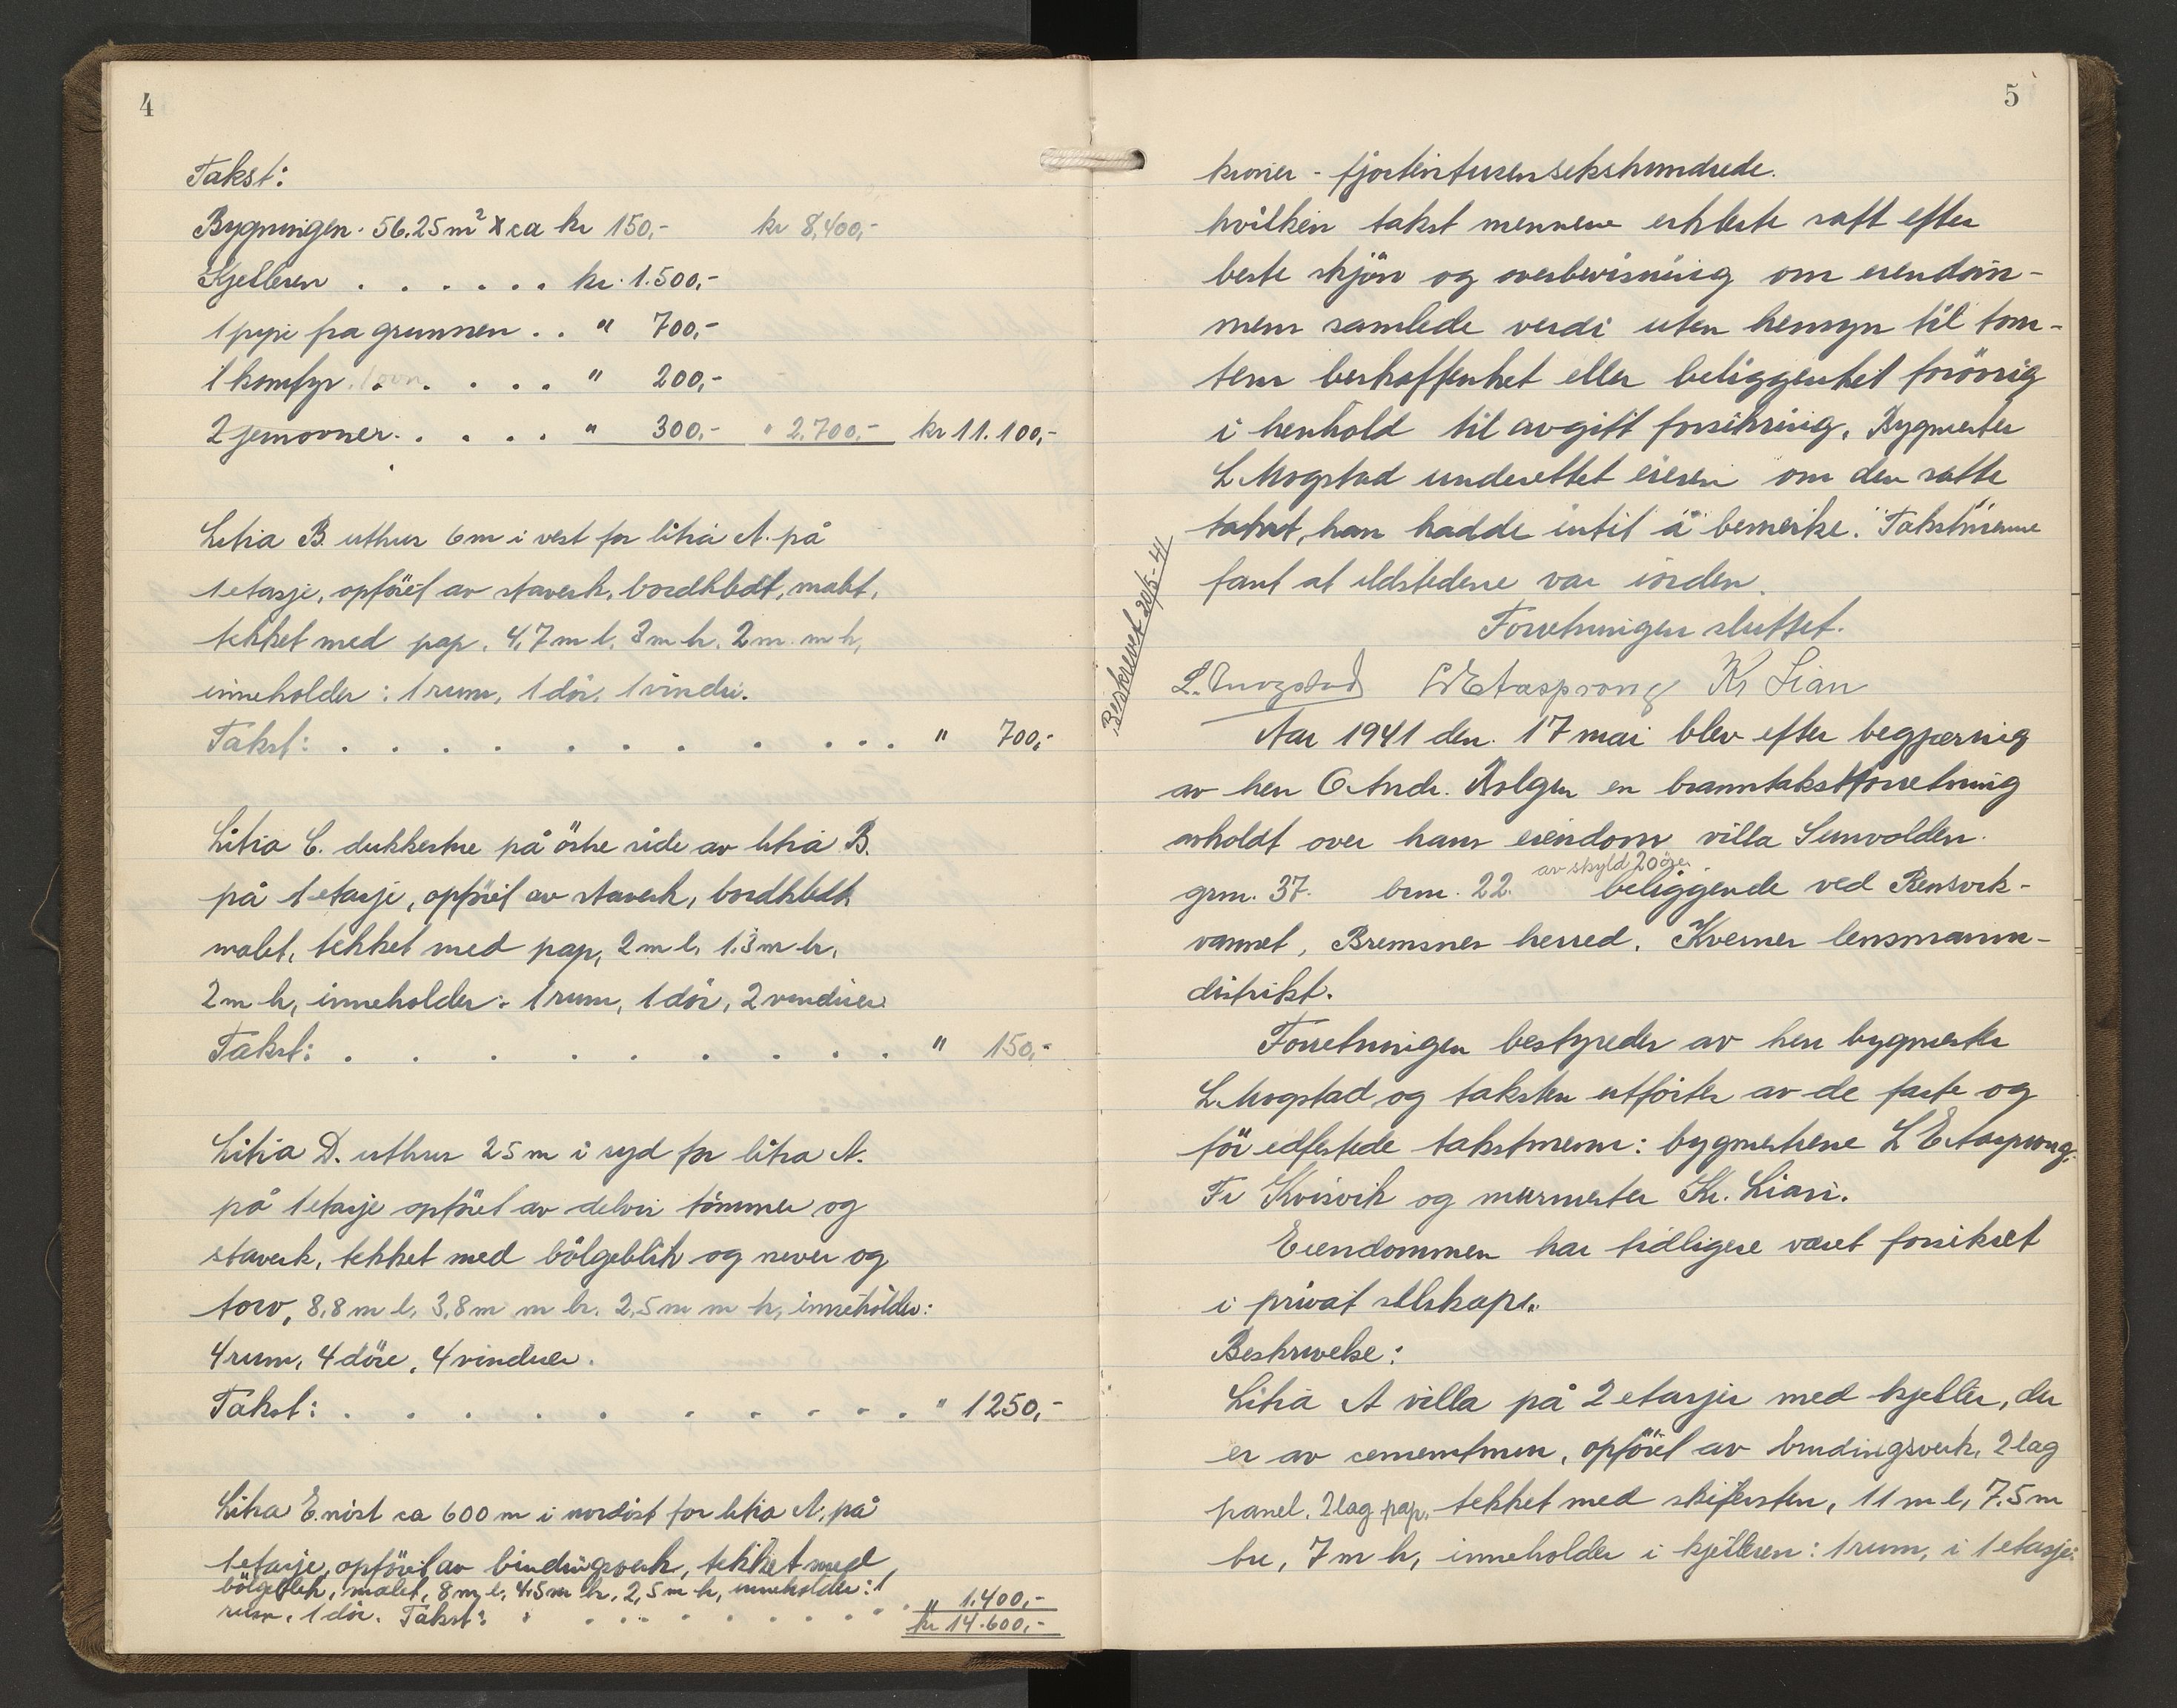 4
Takst:
Bygningen. 56.25 m² x ca kr 150,- kr 8,400,-
Kjelleren . . . . . . kr. 1.500,-
1 pipe fra grunnen . . " 700,-
1 komfyr . . . . . " 200,-
2 jernovner. . . . . " 300,- " 2.700,- kr 11.100,-
Litra B. uthus 6 m i vest for litra A. på
1 etasje, opført av staverk, bordkledt, malt,
tekket med pap. 4,7 m l, 3 m br. 2 m. m h,
inneholder: 1 rum, 1 dör, 1 vindu.
Takst: . . . . . . . . . . . " 700,-
Litra C. dukkestue på östre side av litra B.
på 1 etasje, opföret av staverk, bordkledt
malet, tekket med pap, 2 m l, 1.3 m br.
2 m h, inneholder: 1 rum, 1 dör, 2 vinduer
Takst: . . . . . . . . . " 150,-
Litra D. uthus 25 m i syd for litra A.
på 1 etasje opföret av delvis tömmer og
staverk, tekket med bölgeblik og never og
torv, 8,8 m l, 3,8 m m br. 2,5 m m h, inneholder:
4 rum, 4 döre, 4 vinduer.
Takst: . . . . . . . . . . . " 1250,-
Litra E. nöst ca 600 m i nordöst for litra A, på
1 etasje, opföret av bindingsverk, tekket med
bölgeblik, malet, 8 m l, 4.5 m br, 2,5 m h, inneholder: 1
rum, 1 dör. Takst: . . . . . . . . " 1.400,-
kr 14.600,-
5
kroner - fjortentusensekshundrede.
hvilken takst mennene erklerte satt efter
beste skjön og overbevisning om eiendom-
mens samlede verdi uten hensyn til tom-
tens beskaffenhet eller beliggenhet forövrig
i henhold til avgitt forsikring. Bygmester
L Mogstad underettet eieren om den satte
takst, han hadde intet å bemerke. Takstmennene
fant at ildstedene var iorden.
Forretningen sluttet.
L. Mogstad L E Aasprong Kr Lian
Beskrevet 20/5-41
Aar 1941 den. 17 mai blev efter begjæring
av herr O Andr. Holgen en branntakstforretning
avholdt over hans eiendom villa Sunvolden.
av skyld 20 öre.
grn. 37. brn. 22. beliggende ved Rensvik-
vannet, Bremsnes herred. Kvernes lensmanns-
distrikt.
Forretningen bestyredes av herr bygmester
L Mogstad og taksten utförtes av de faste og
för edfestede takstmenn: bygmestrene L E Aasprong,
Fr Kvisvik og murmester Kr. Lian.
Eiendommen har tidligere været forsikret
i privat selskape.
Beskrivelse:
Litra A villa på 2 etasjer med kjeller, der
er av cementmur, opföret av bindingsverk, 2 lag
panel, 2 lag pap, tekket med skifersten, 11 m l, 7.5 m
br, 7 m h, inneholder i kjelleren: 1 rum, i 1 etasje: